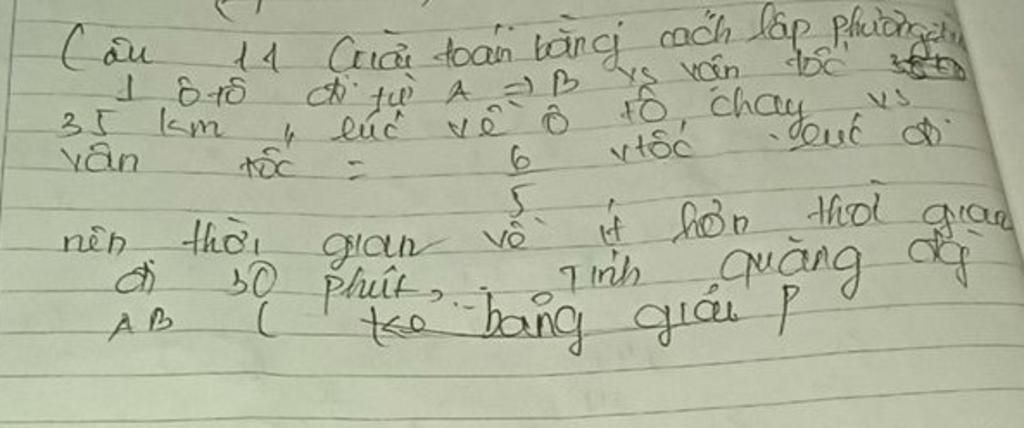 Câu 11 Giải toán bằng cách lập phương
1 ô tô đi từ A => B vs vận tốc
35 km, lúc về ô tô chạy vs
vận tốc = 6 vtốc lúc đi
5
nên thời gian về ít hơn thời gian
đi 30 phút, Tính quãng
AB ( kẻ bảng giải P